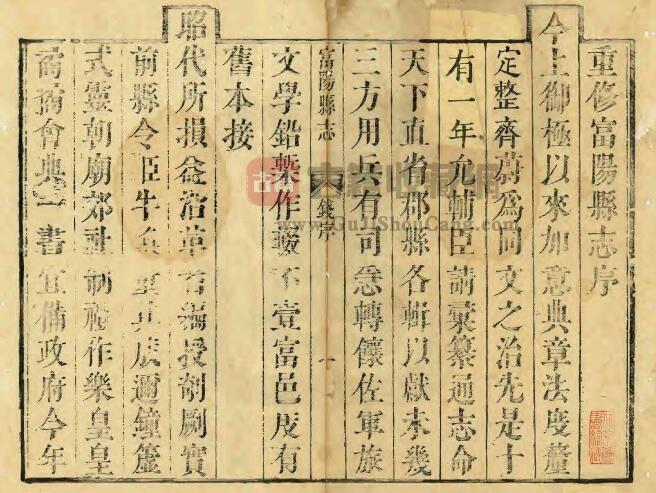 重修富陽縣志序
今上御極以來加意典章法度釐
定整齊蔚爲同文之治先是十
有一年允輔臣請彙纂通志命
天下直省郡縣各輯以獻未幾
三方用兵有司急轉饟佐軍旅
富陽縣志 錢序 一
文學鉛槧作輟不壹富邑有
舊本接
昭代所損益沿革編授剞劂實
前縣令臣牛其成邇鐘簴
式靈朝廟郊社制禮作樂皇皇
會典一書宜備政府今年
www.GuJiShouCang.com